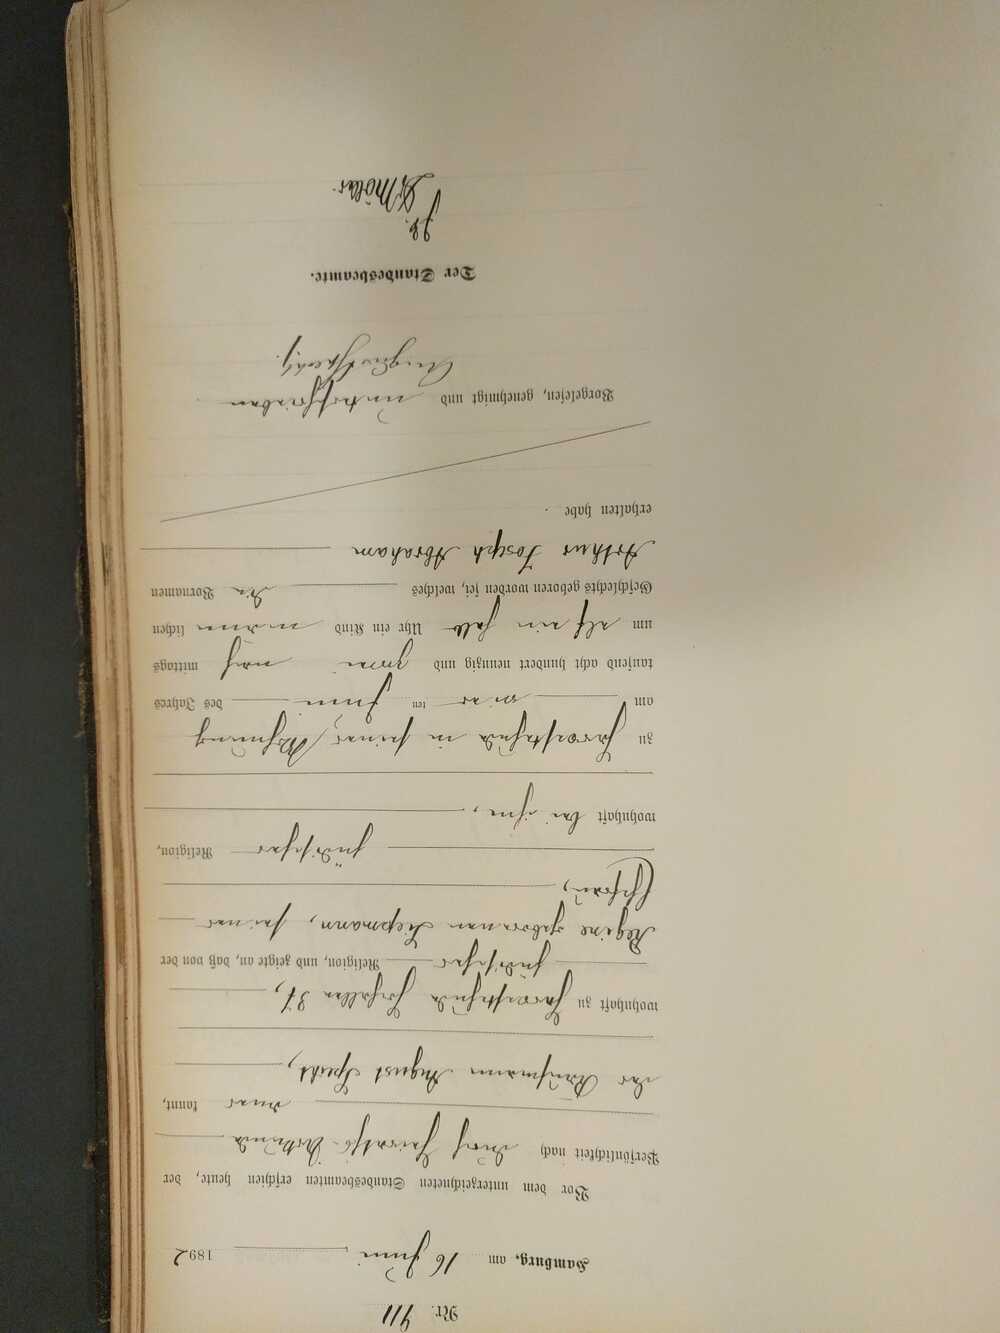 Nr. 911
Hamburg, am 16 Juni 1892
Vor dem unterzeichneten Standesbeamten erschien heute, der
Persönlichkeit nach durch Heiraths-Urkunde
aner kannt,
der Kaufmann August Specht,
wohnhaft zu Harvestehude 37,
jüdischer Religion, und zeigte an, daß von der
Regine geborenen Liepmann, seiner
Ehefrau,
jüdischer Religion,
wohnhaft bei ihm,
zu Harvestehude in seiner Wohnung
am vier ten Juni des Jahres
tausend acht hundert neunzig und zwei nach mittags
um elf ein halb Uhr ein Kind männ lichen
Geschlechts geboren worden sei, welches die Vornamen
Arthur Joseph Abraham
erhalten habe.
Vorgelesen, genehmigt und unterschrieben
August Specht.
Der Standesbeamte.